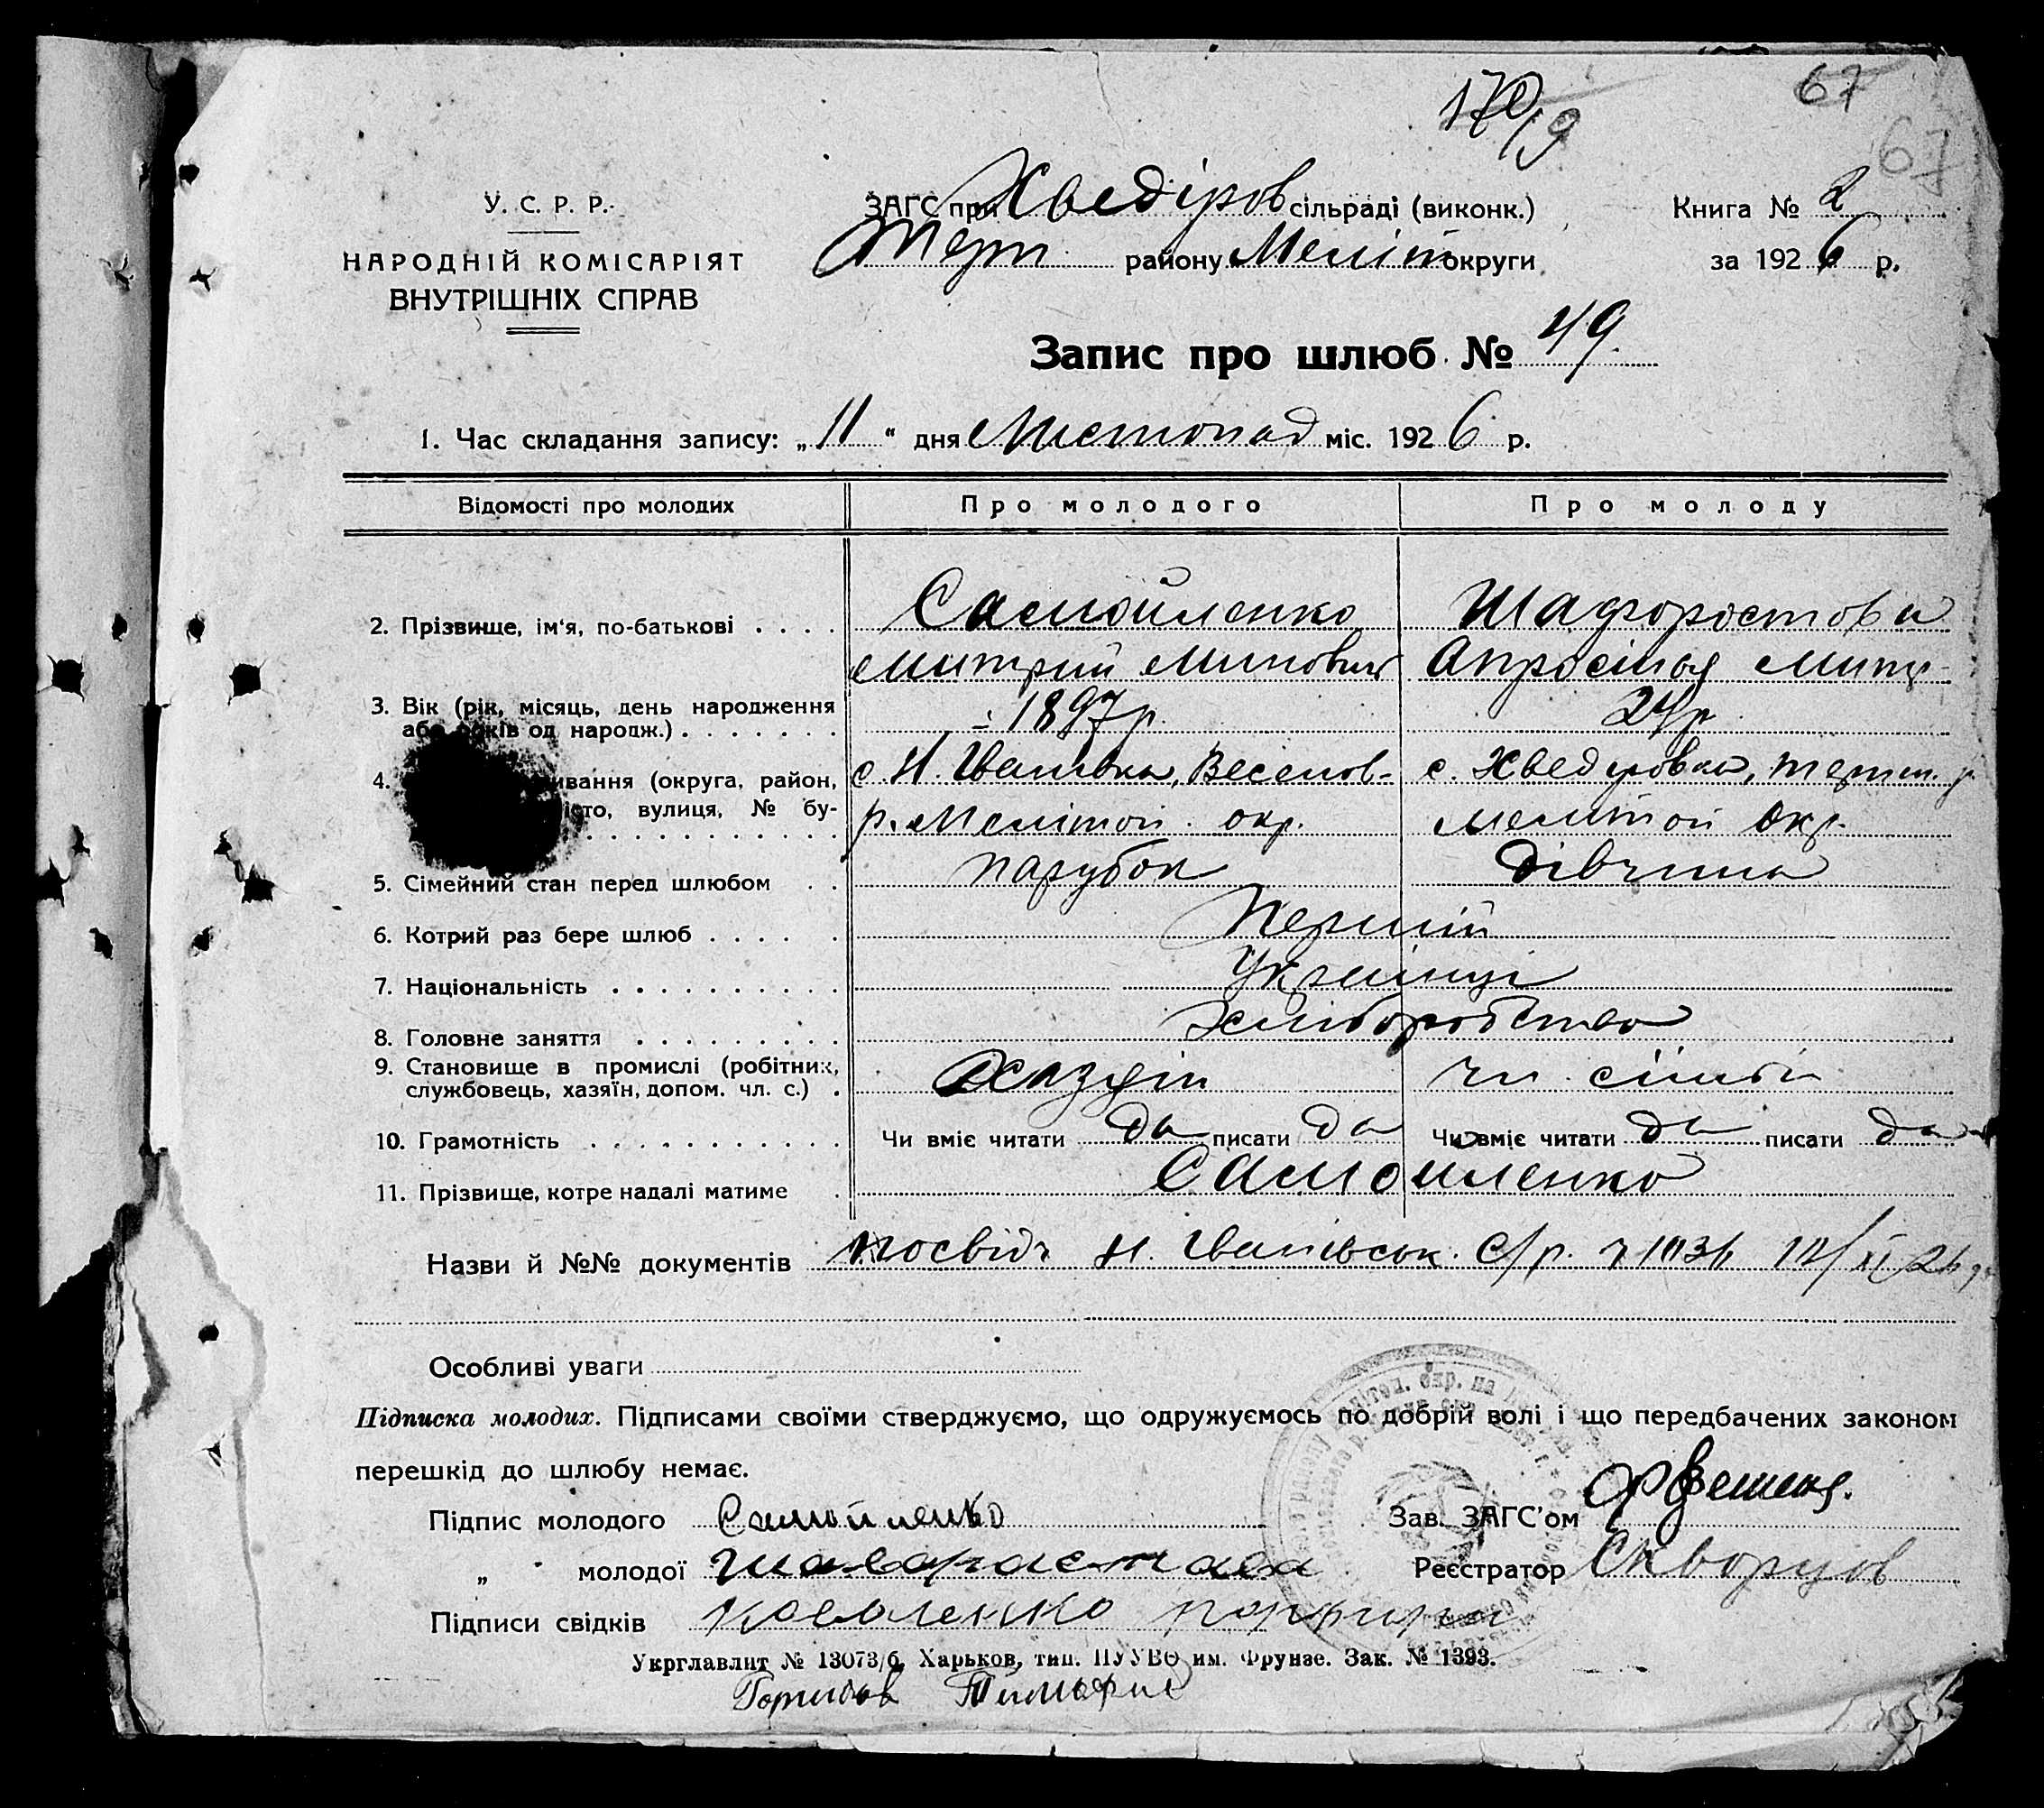 67
170/9
67
У. С. Р. Р.
НАРОДНІЙ КОМІСАРІЯТ
ВНУТРІШНІХ СПРАВ
ЗАГС при Хведіров сільраді (виконк.)
Терп району Меліт округи
Книга № 2
за 1926 р.
Запис про шлюб № 49
1. Час складання запису: „11“ дня Листопад міс. 1926 р.
Відомості про молодих Про молодого Про молоду
2. Прізвище, ім'я, по-батькові . . . . Самойленко Шафоростова
Митрий Минович Апросіния Митр
3. Вік (рік, місяць, день народження
або років од народж.) . . . . . . . 1897р. 24р
4. вання (округа, район, с. Н. Іванівка, Веселов- с. Хведоровка, терпт. р
істо, вулиця, № бу- р. Мелітоп. окр. Мелітоп окр.
5. Сімейний стан перед шлюбом . . парубок дівчина
6. Котрий раз бере шлюб . . . . . Перший
7. Національність . . . . . . . . . . Українці
8. Головне заняття . . . . . . . . . Хліборобство
9. Становище в промислі (робітник,
службовець, хазяїн, допом. чл. с.) . Хазяїн чл. сім'ї
10. Грамотність . . . . . . . . . . . Чи вміє читати да писати да Чи вміє читати да писати да
11. Прізвище, котре надалі матиме . Самойленко
Назви й №№ документів Посвідч Н. Іванівськ. С/р. ч 1036 10/XI 26 р
Особливі уваги
Підписка молодих. Підписами своїми стверджуємо, що одружуємось по добрій волі і що передбачених законом
перешкід до шлюбу немає.
Підпис молодого Самойленко Зав. ЗАГС'ом
„ молодої Шафорастава Реєстратор Скворцов
Підписи свідків Коваленко порфирій
Укрглавлит № 13073/б. Харьков, тип. ПУУВО им. Фрунзе. Зак. № 1393.
Тимофій